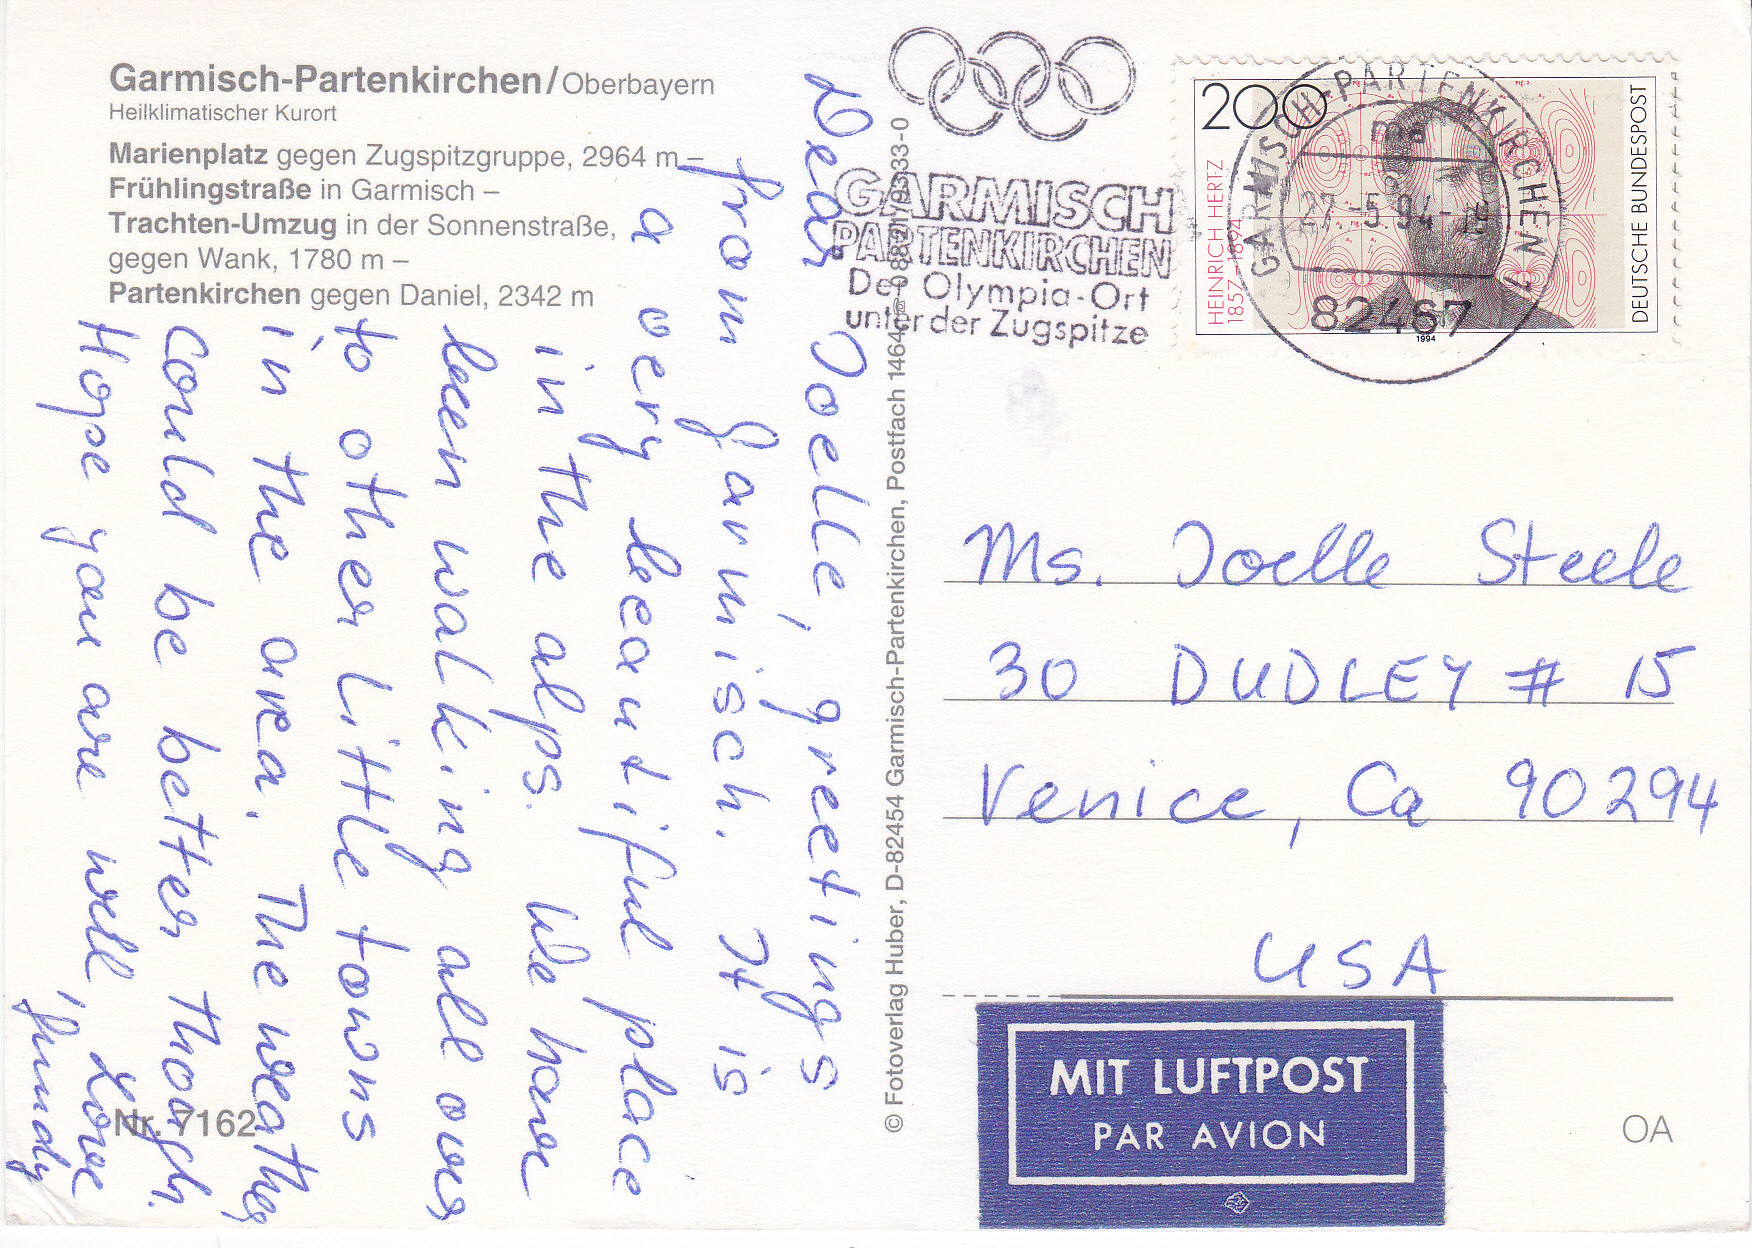 Garmisch-Partenkirchen/Oberbayern
Heilklimatischer Kurort
Marienplatz gegen Zugspitzgruppe, 2964 m –
Frühlingstraße in Garmisch –
Trachten-Umzug in der Sonnenstraße,
gegen Wank, 1780 m –
Partenkirchen gegen Daniel, 2342 m
Dear Joelle, greetings
from Garmisch. It is
a very beautiful place
in the alps. We have
been walking all over
to other little towns
in the area. The weather
could be better though.
Hope you are well, Love
Nr. 7162
© Fotoverlag Huber, D-82454 Garmisch-Partenkirchen, Postfach 1464
GARMISCH
PARTENKIRCHEN
Der Olympia-Ort
unter der Zugspitze
200
HEINRICH HERTZ
1857-1894
DEUTSCHE BUNDESPOST
1994
GARMISCH-PARTENKIRCHEN 1
ma
27.-5.94-19
82467
Ms. Joelle Steele
30 DUDLEY # 15
Venice, Ca 90294
USA
MIT LUFTPOST
PAR AVION
OA